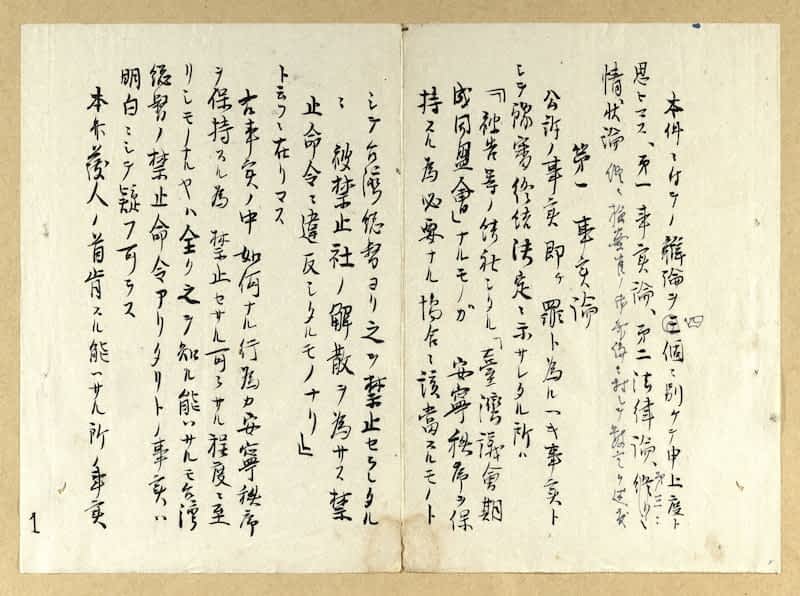 本件ニ付キノ辯論ヲ四個ニ別ケテ申上度ト
思ヒマス、第一事実論、第二法律論、第三ニ
情状論
第一 事実論
公訴ノ事実即チ罪ト為ルヘキ事実ト
シテ豫審終結決定ニ示サレタル所ハ
「被告等ノ結社シタル「臺湾議會期
成同盟會」ナルモノガ 安寧秩序ヲ保
持スル為必要ナル場合ニ該當スルモノト
シテ台湾総督ヨリ之ヲ禁止セラレタル
ニ 被禁止社ノ解散ヲ為サス禁
止命令ニ違反シタルモノナリ」
ト云フニ在リマス
右事実ノ中如何ナル行為カ安寧秩序
ヲ保持スル為 禁止セサル可ラサル程度ニ至
リシモノナルヤハ全ク之ヲ知ル能ハサルモ台湾
総督ノ禁止命令アリタリトノ事実ハ
明白ニシテ疑フ可ラス
本弁護人ノ首肯スル能ハサル所ノ事実
1